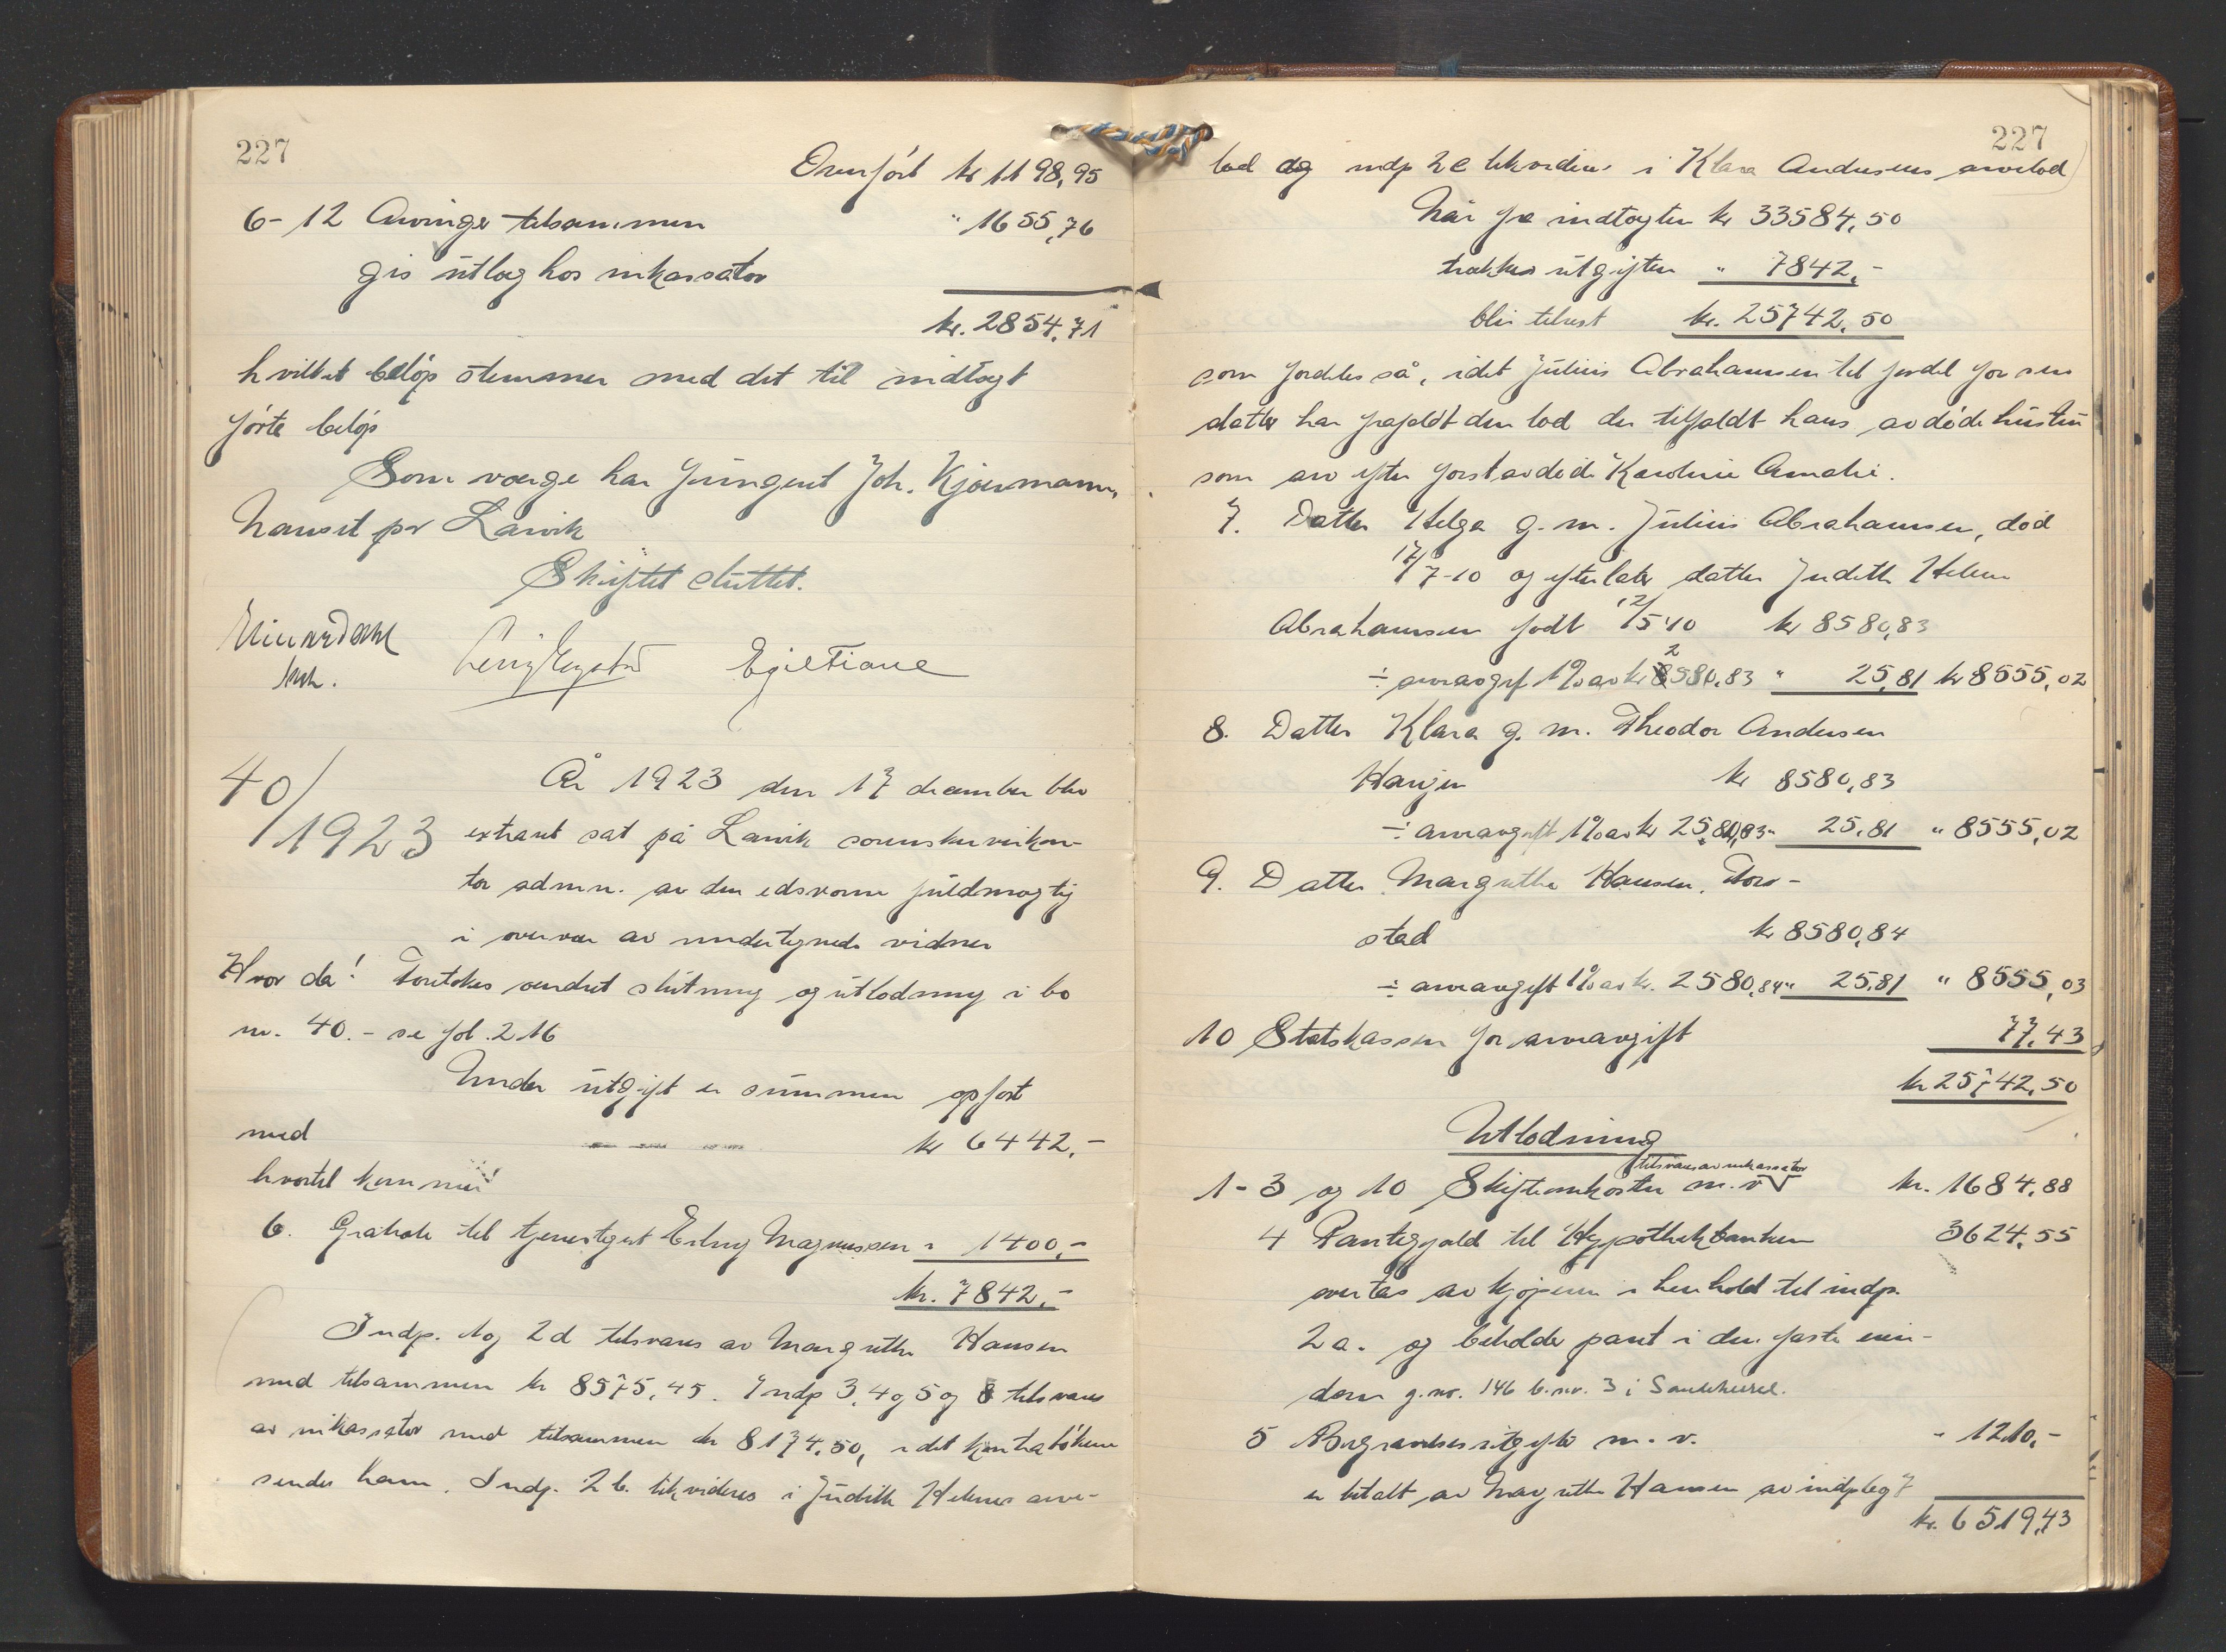 227
Overfört kr 1198,95
6-12 Arvinger tilsammen " 1655,76
gis utlæg hos inkassator
kr. 2854,71
hvilket beløp stemmer med det til indtægt
førte beløp
Som værge har fungert Joh. Kjærmann,
Nanset pr Larvik
Skiftet sluttet.
Egil Tiane
40/1923
År 1923 den 17 december blev
extraret sat på Larvik sorenskriverkon-
tor admn. av den edsvorne fuldmægtig
i overvær av undertegnede vidner
Hvor da! Foretokes endret slutning og utlodning i bo
nr. 40. - se fol. 216
Under utgift er summen opført
med kr 6442,-
hvortil kommer
6. Gratiale til tjenestegut Erling Magnussen " 1400,-
kr. 7842,-
Indp. 1 og 2d tilsvares av Margrethe Hansen
med tilsammen kr 8575,45. Indp 3, 4 og 5 og 8 tilsvares
av inkassator med tilsammen kr 8174,50, idet kontrabökene
sendes ham. Indp. 2 b. likvideres i Judith Helenes arve-
227
lod og indp 2c likvideres i Klara Andersens arvelod
Når fra indtægten kr 33584,50
trækkes utgiften " 7842,-
blir tilrest kr. 25742,50
som fordeles så, idet Julius Abrahamsen til fordel for sin
datter har frafaldt den lod der tilfaldt hans avdöde hustru
som arv efter forstavdöde Karoline Amalie.
7. Datter Helga g. m. Julius Abrahamsen, död
17/7-10 og efterlater datter Judith Helene
Abrahamsen född 12/5 10 kr 8580,83
÷ arveavgift 1% av kr 2580,83 " 25,81 kr 8555,02
8. Datter Klara g. m. Theodor Andersen
Havjen kr 8580,83
÷ arveavgift 1% av kr 2580,83 " 25,81 " 8555,02
9. Datter Margrethe Hansen, Tor-
stad kr 8580,84
÷ arveavgift 1% av kr. 2580,84 " 25,81 " 8555,03
10 Statskassen for arveavgift 77,43
kr 25742,50
Utlodning
tilsvares av inkassator
1-3 og 10 Skifteomkostn m. v kr. 1684,88
4 Pantegjæld til Hypothekbanken 3624,55
overtas av kjøperen i henhold til indp.
2 a. og beholder pant i den faste eien-
dom g.nr. 146 b.nr. 3 i Sandeherred.
5 Begravelsesutgifter m. v. " 1210,-
er betalt av Margrethe Hansen av indp
kr. 6519,43